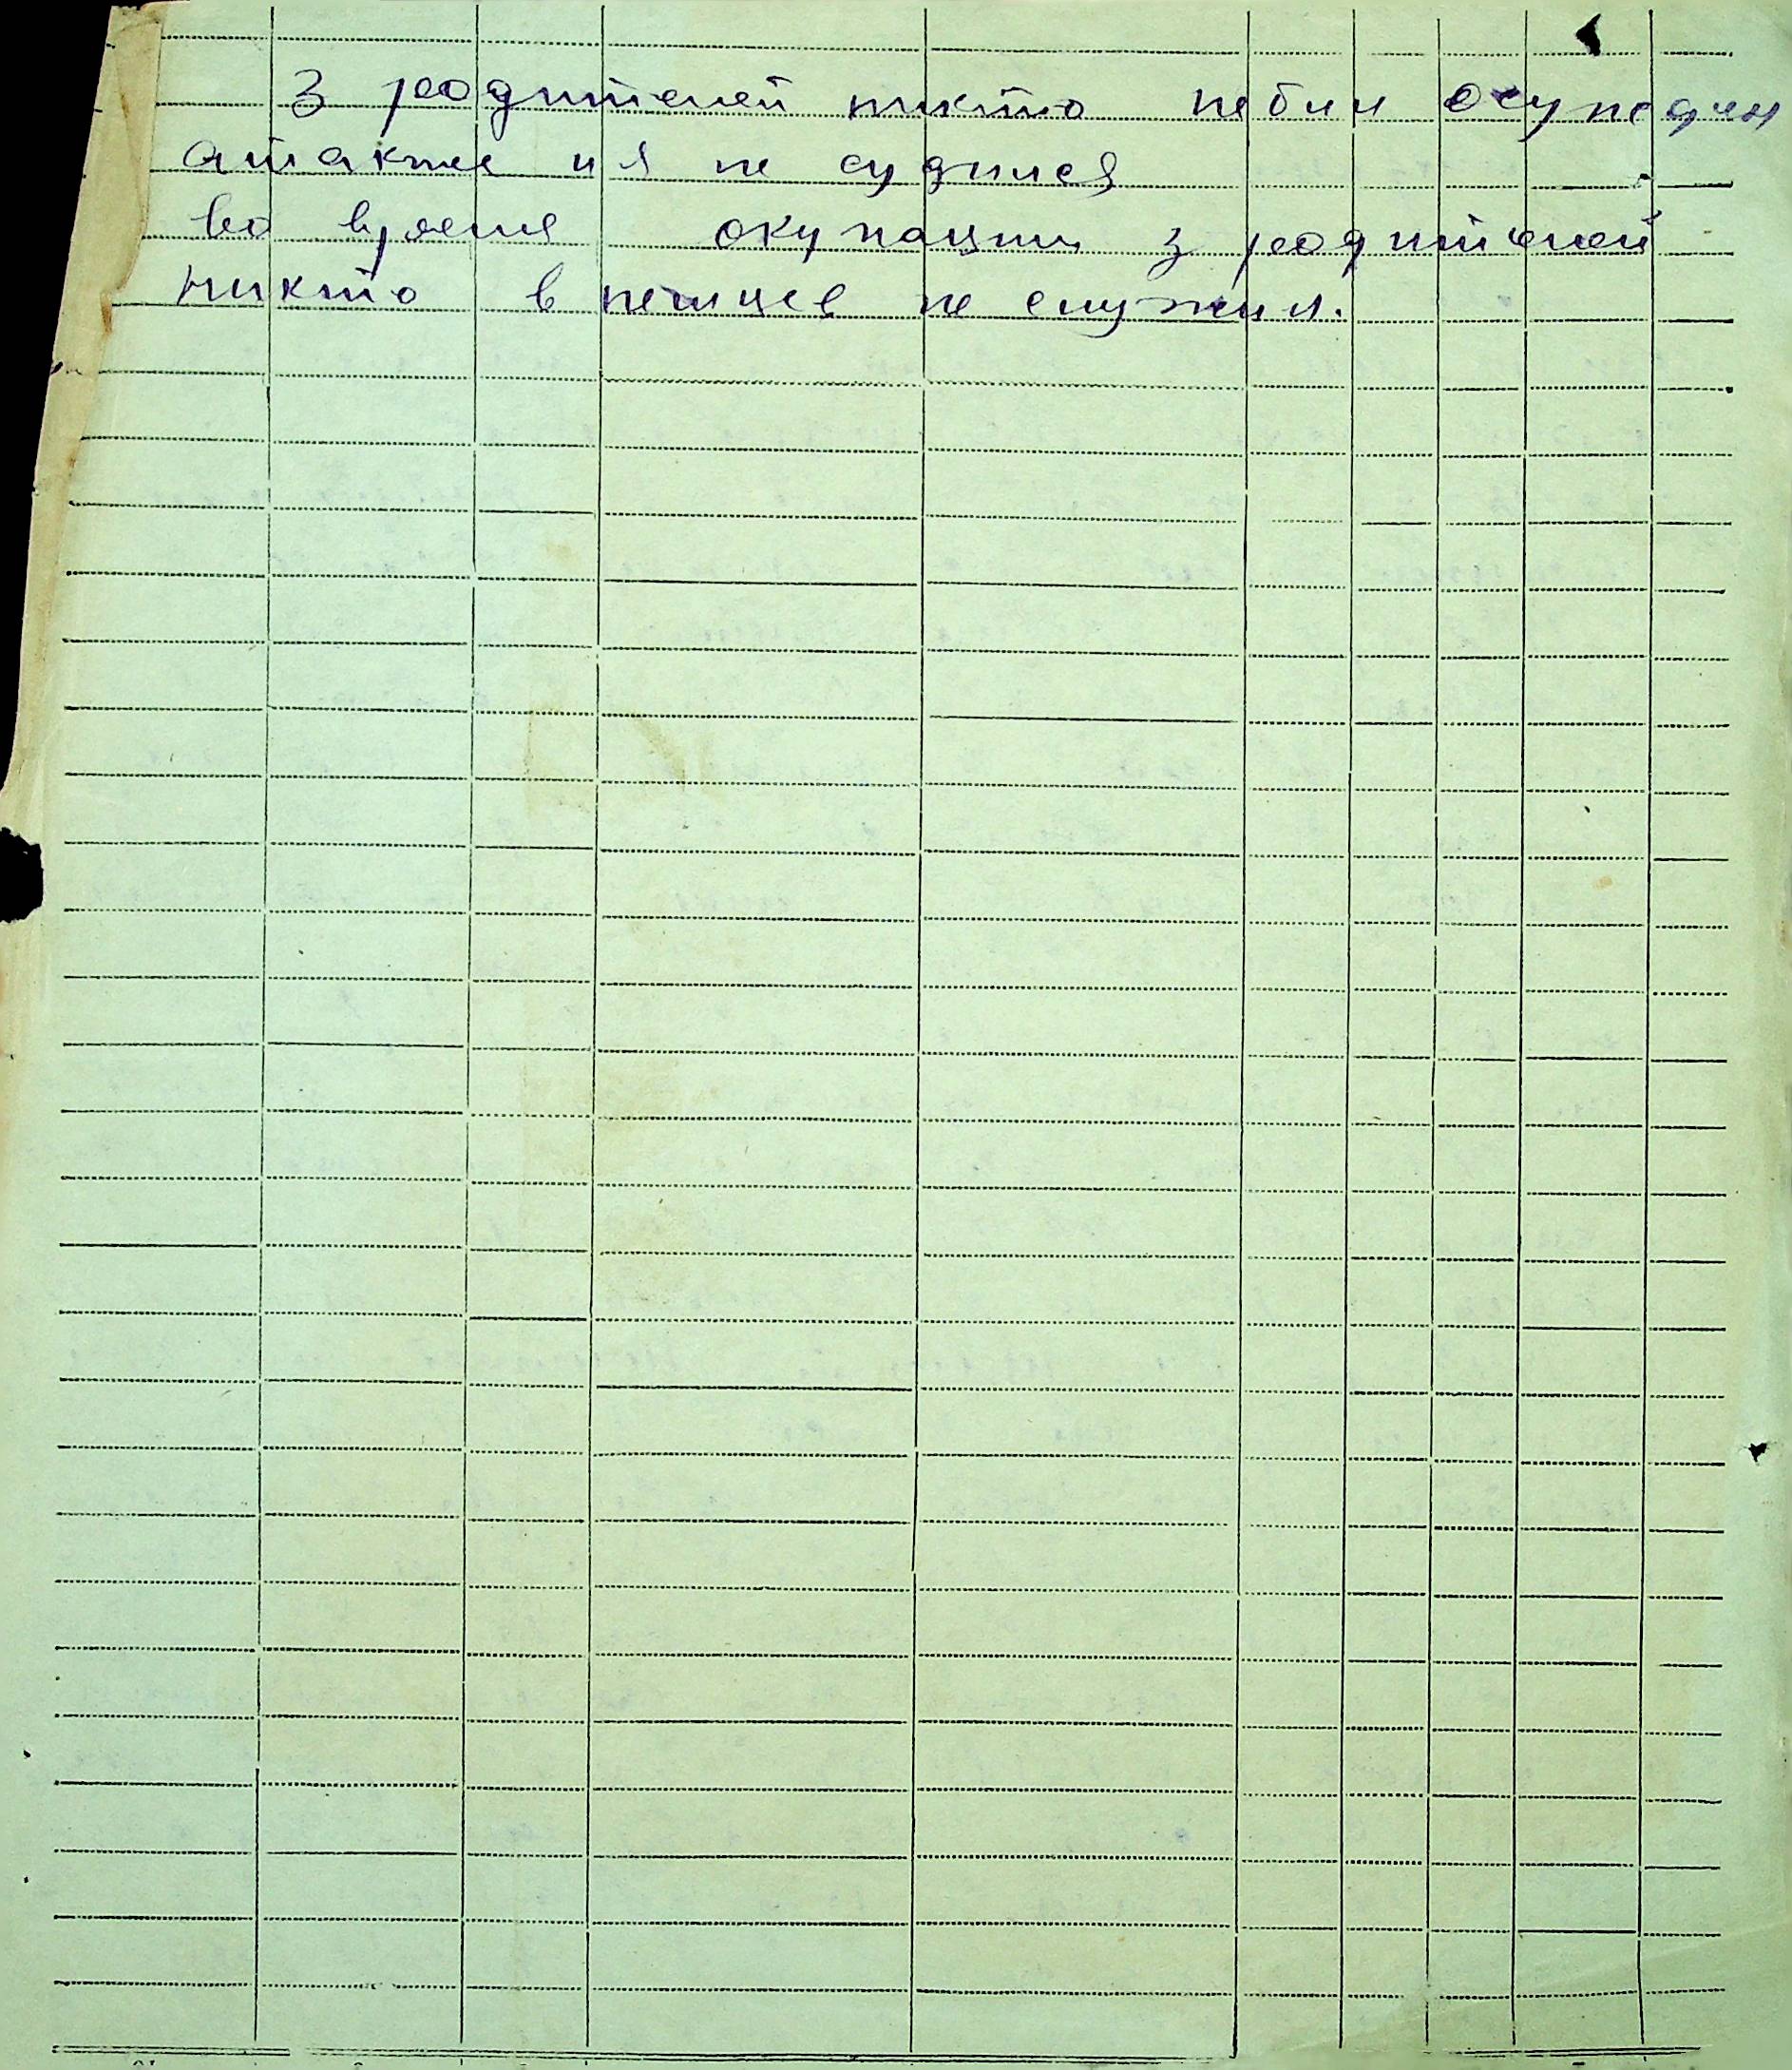 З родителей никто небил осужден
атакже и я не судился
во время окупации з родителей
никто в немцев не служил.